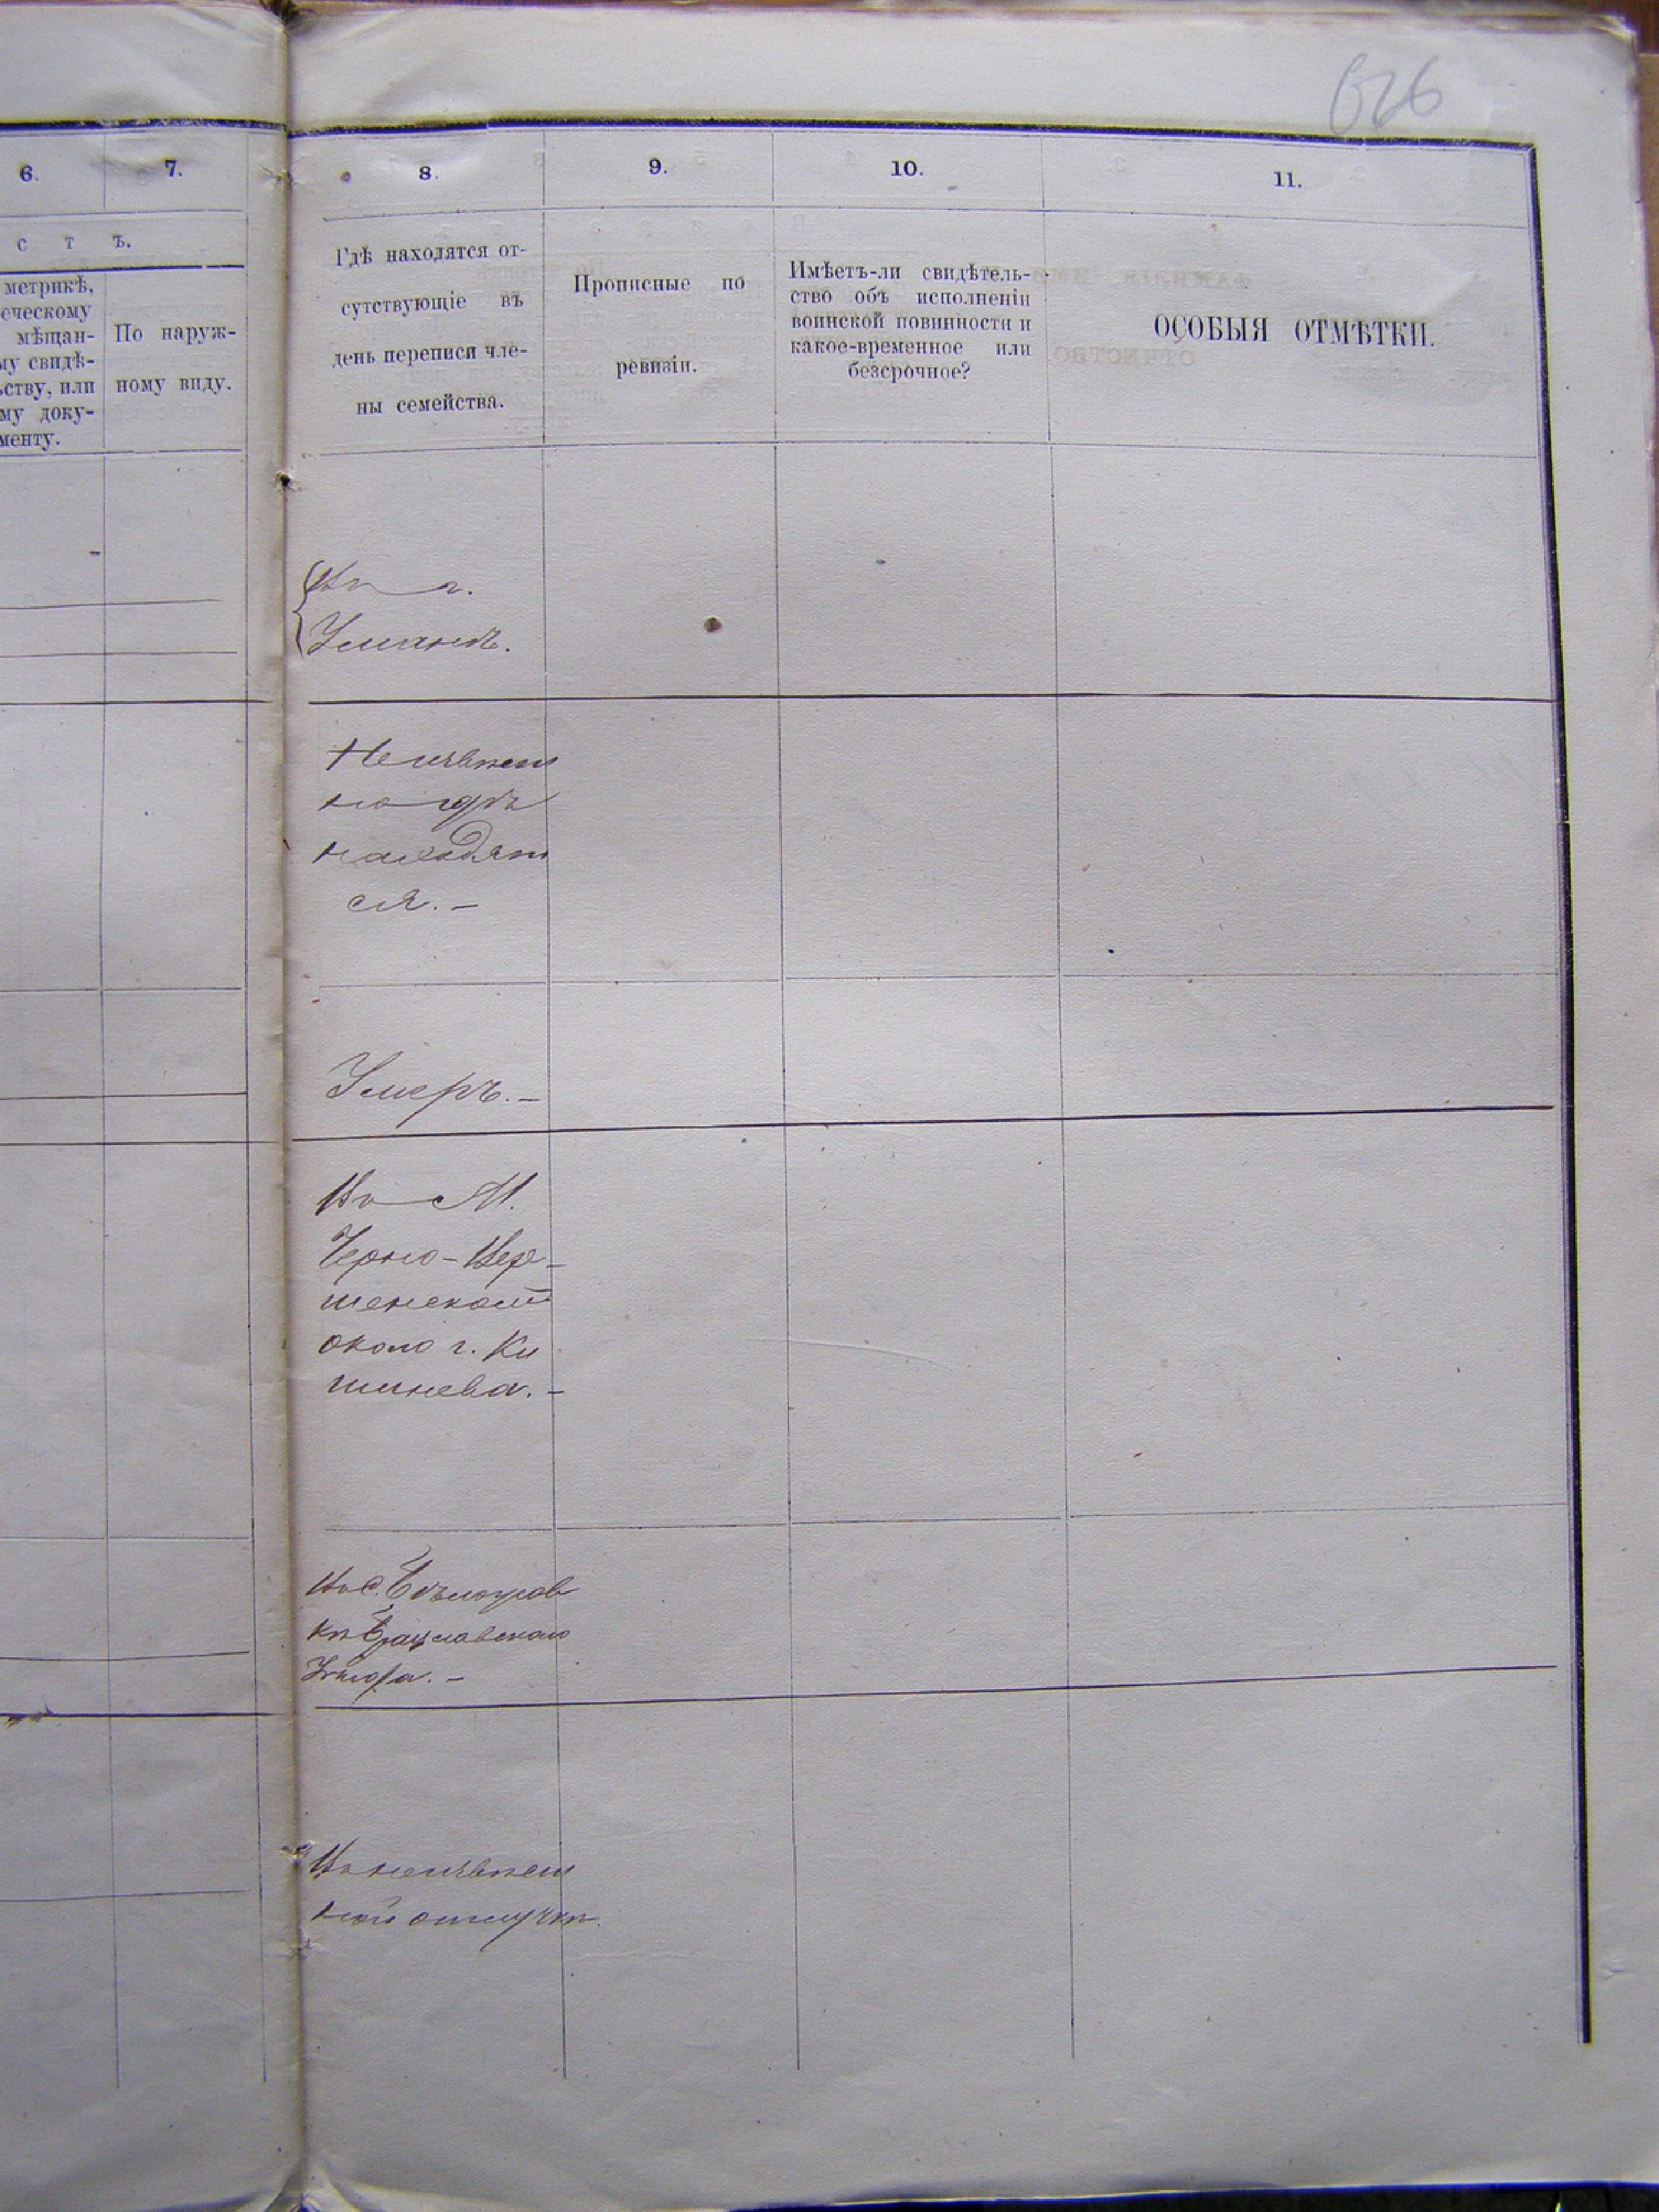 626
6.
7.
с т ъ.
метрикѣ,
еческому
мѣщан-
му свидѣ-
ьству, или
му доку-
менту.
По наруж-
ному виду.
8.
9.
10.
11.
Гдѣ находятся от-
сутствующіе въ
день переписи чле-
ны семейства.
Прописные по
ревизіи.
Имѣетъ-ли свидѣтель-
ство объ исполненіи
воинской повинности и
какое-временное или
безсрочное?
ОСОБЫЯ ОТМѢТКИ.
Въ г.
Уманѣ.
Неизвѣст
но гдѣ
находят
ся. —
Умеръ. —
Въ М.
Черно-
около г. Ки
шинева. —
Въ С.
Брацлавскаго
Уѣзда. —
Въ неизвѣст
ной отлучкѣ.